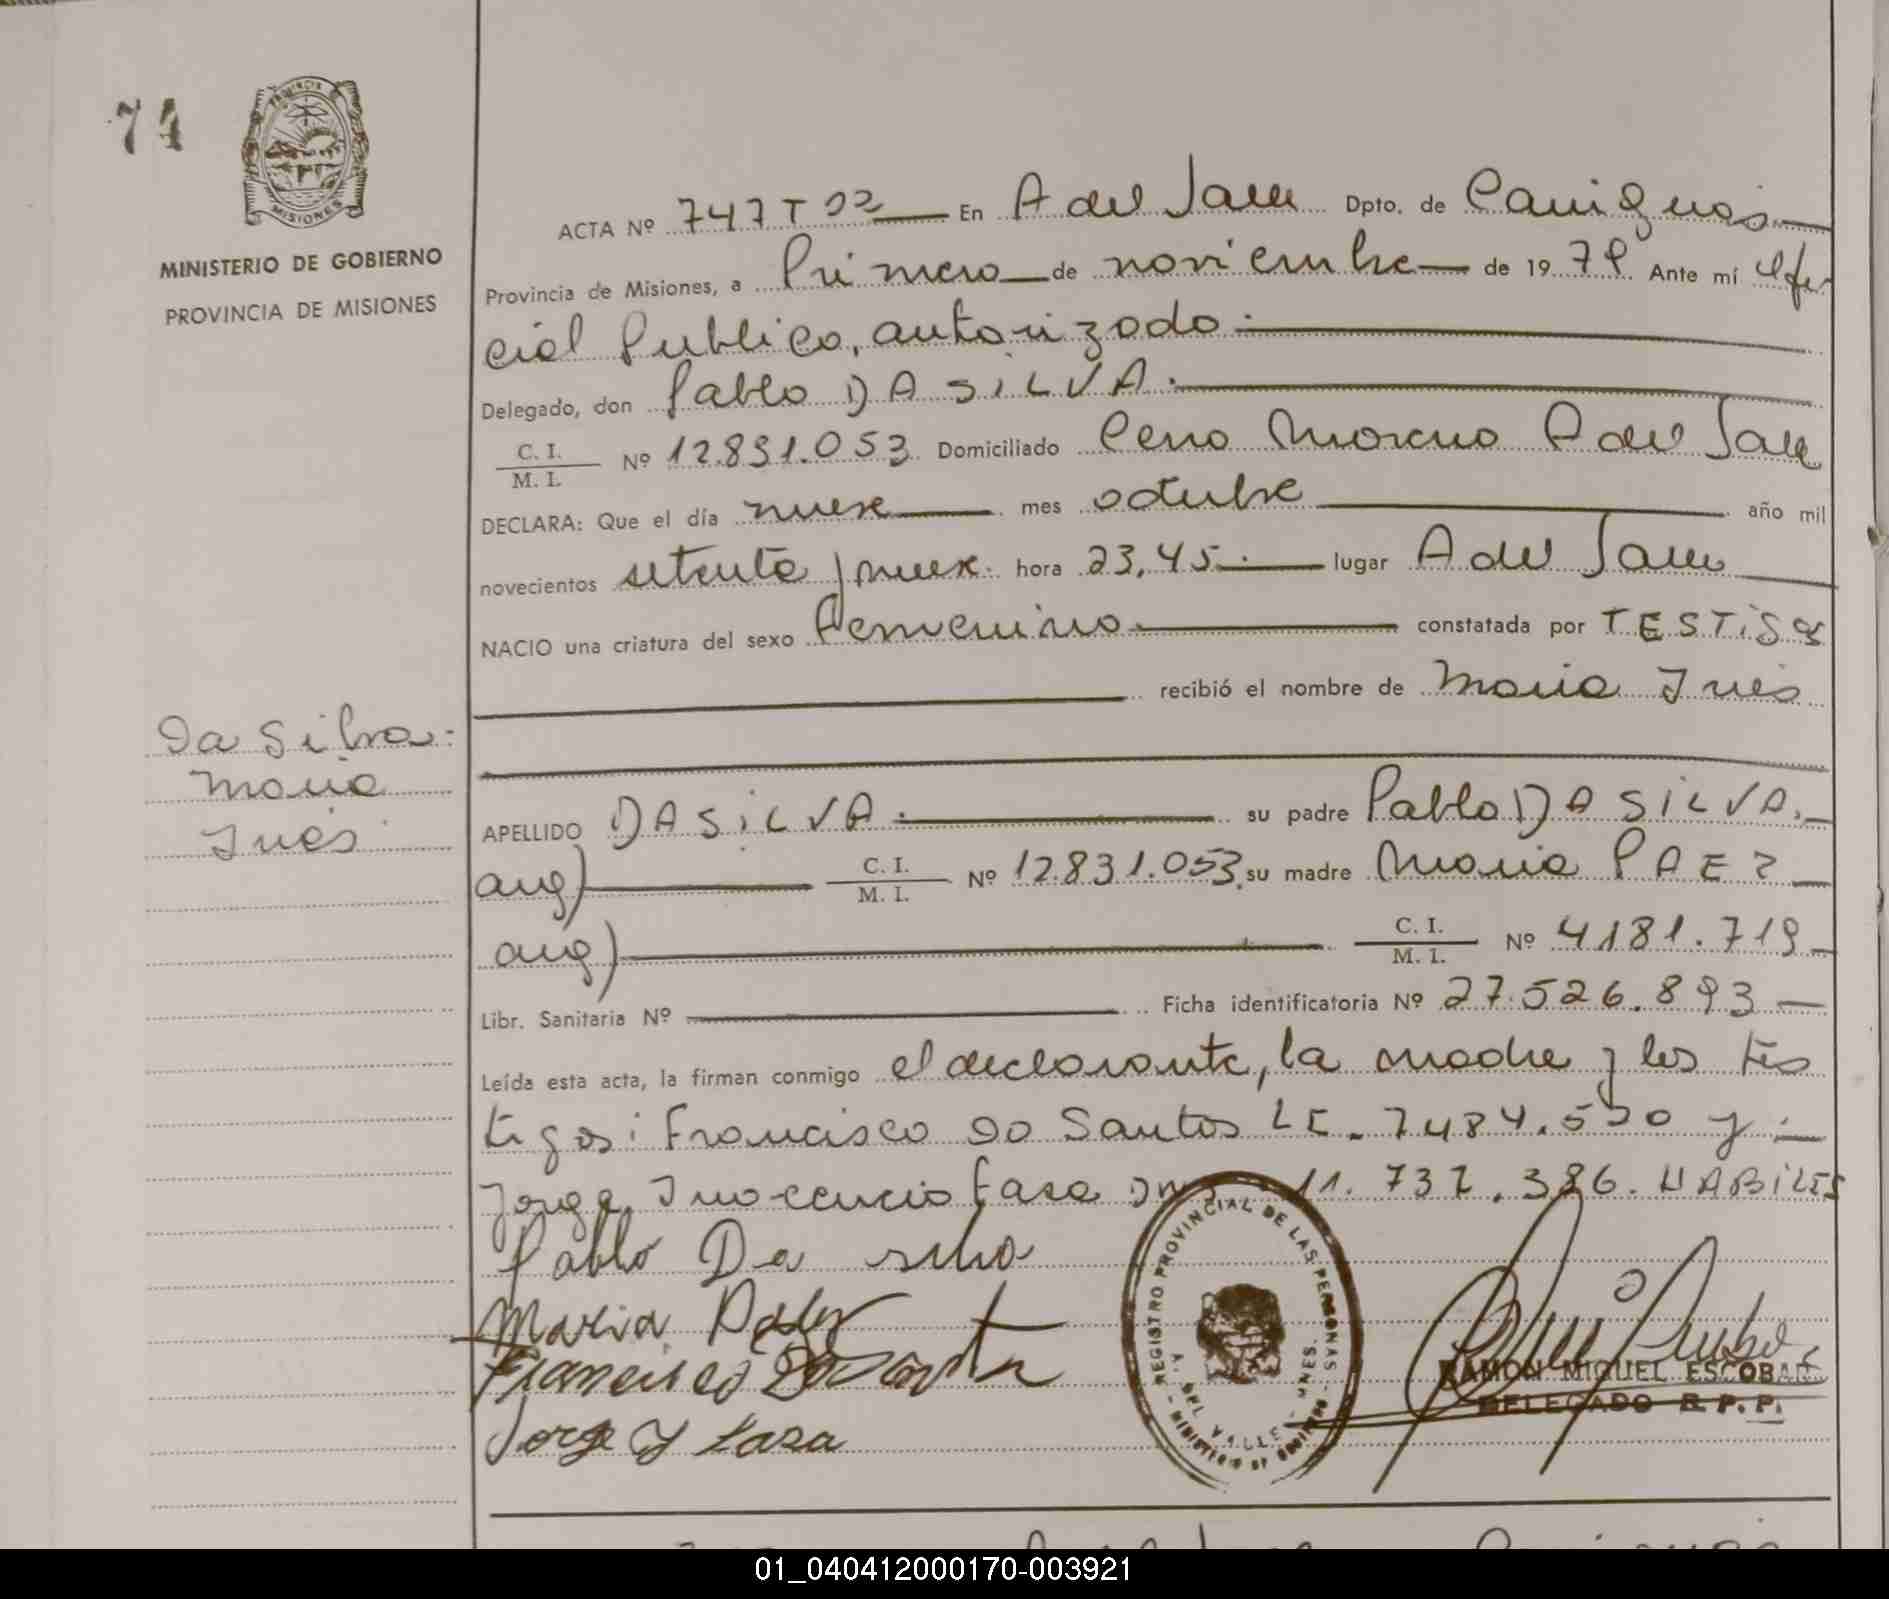 74
PROVINCIA
MISIONES
MINISTERIO DE GOBIERNO
PROVINCIA DE MISIONES
ACTA Nº 747 T 02 En A del Valle Dpto. de Cainguás
Provincia de Misiones, a Primero de noviembre de 1979 Ante mí Ofi
cial Publico, autorizado.
Delegado, don Pablo DA SILVA.
C. I. / M. I. Nº 12.831.053 Domiciliado Cerro Moreno A del Valle
DECLARA: Que el día nueve mes octubre año mil
novecientos setenta y nueve. hora 23,45. lugar A del Valle
NACIO una criatura del sexo Femenino constatada por TESTIGOS
recibió el nombre de Maria Inés
Da Silva.
Maria
Inés
APELLIDO DA SILVA. su padre Pablo DA SILVA.
arg) C. I. / M. I. Nº 12.831.053, su madre Maria PAEZ
arg) C. I. / M. I. Nº 4181.719
Libr. Sanitaria Nº Ficha identificatoria Nº 27.526.893
Leída esta acta, la firman conmigo el declarante, la madre y los tes
tigos: Francisco Do Santos LE. 7484.520 y
Jorge Inocencio Lasa 11.732.386. HABILES
Pablo Da silva
Maria Paez
Francisco
Jorge I Lasa
REGISTRO PROVINCIAL DE LAS PERSONAS
MINISTERIO DE GOBIERNO
A. DEL VALLE - MNES.
RAMON MIGUEL ESCOBAR
DELEGADO R. P. P.
01_040412000170-003921